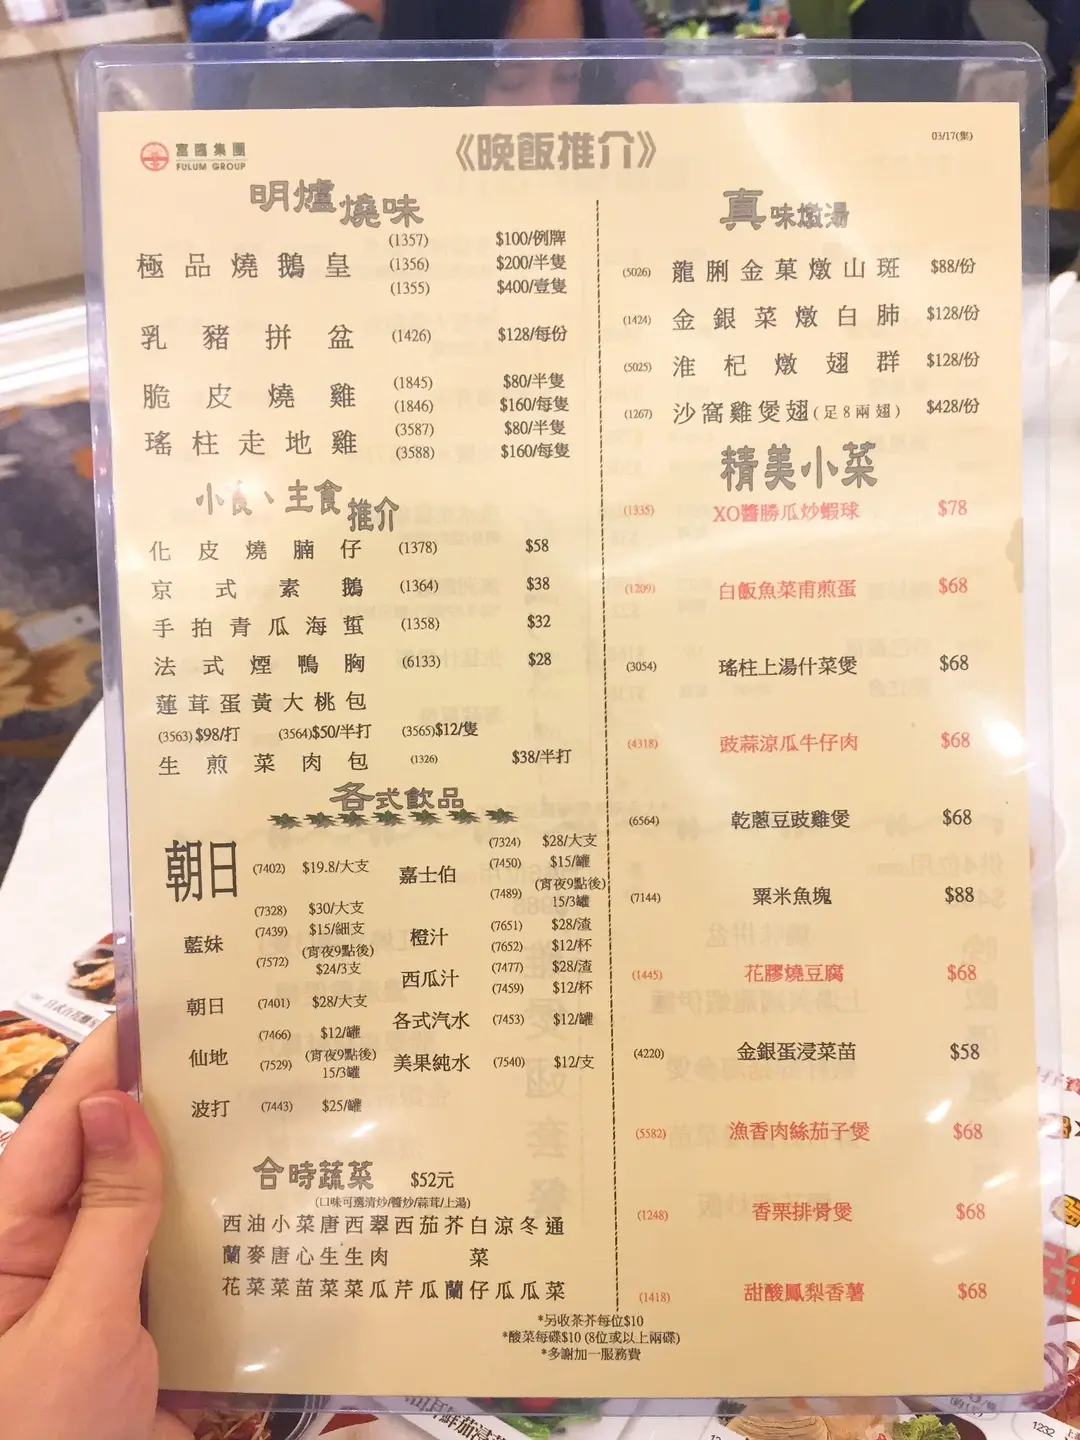 富臨集團
FULUM GROUP
《晚飯推介》
03/17(集)
明爐燒味
極品燒鵝皇 (1357) $100/例牌
(1356) $200/半隻
(1355) $400/壹隻
乳豬拼盆 (1426) $128/每份
脆皮燒雞 (1845) $80/半隻
(1846) $160/每隻
瑤柱走地雞 (3587) $80/半隻
(3588) $160/每隻
小食、主食推介
化皮燒腩仔 (1378) $58
京式素鵝 (1364) $38
手拍青瓜海蜇 (1358) $32
法式煙鴨胸 (6133) $28
蓮茸蛋黃大桃包
(3563) $98/打 (3564)$50/半打 (3565)$12/隻
生煎菜肉包 (1326) $38/半打
各式飲品
朝日 (7402) $19.8/大支
藍妹 (7328) $30/大支
(7439) $15/細支
(7572) (宵夜9點後)
$24/3支
朝日 (7401) $28/大支
仙地 (7466) $12/罐
(7529) (宵夜9點後)
15/3罐
波打 (7443) $25/罐
嘉士伯 (7324) $28/大支
(7450) $15/罐
(7489) (宵夜9點後)
15/3罐
橙汁 (7651) $28/渣
(7652) $12/杯
西瓜汁 (7477) $28/渣
(7459) $12/杯
各式汽水 (7453) $12/罐
美果純水 (7540) $12/支
合時蔬菜 $52元
(口味可選清炒/醬炒/蒜茸/上湯)
西油小菜唐西翠西茄芥白涼冬通
蘭麥唐心生生肉 菜
花菜菜苗菜菜瓜芹瓜蘭仔瓜瓜菜
真味燉湯
(5026) 龍脷金菓燉山斑 $88/份
(1424) 金銀菜燉白肺 $128/份
(5025) 淮杞燉翅群 $128/份
(1267) 沙窩雞煲翅(足8兩翅) $428/份
精美小菜
(1335) XO醬勝瓜炒蝦球 $78
(1209) 白飯魚菜甫煎蛋 $68
(3054) 瑤柱上湯什菜煲 $68
(4318) 豉蒜涼瓜牛仔肉 $68
(6564) 乾蔥豆豉雞煲 $68
(7144) 粟米魚塊 $88
(1445) 花膠燒豆腐 $68
(4220) 金銀蛋浸菜苗 $58
(5582) 漁香肉絲茄子煲 $68
(1248) 香栗排骨煲 $68
(1418) 甜酸鳳梨香薯 $68
*另收茶芥每位$10
*酸菜每碟$10 (8位或以上兩碟)
*多謝加一服務費
1232